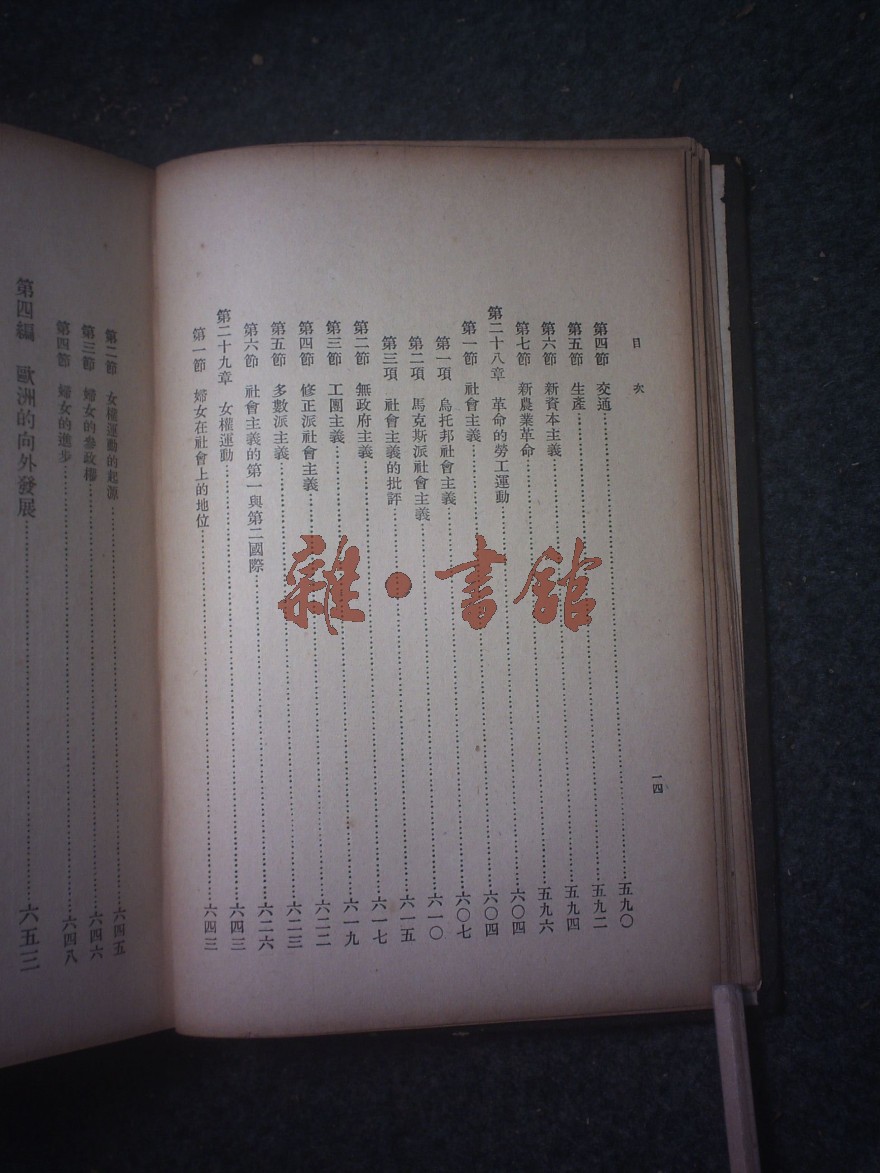 目次
第四節 交通……五九〇
第五節 生產……五九二
第六節 新資本主義……五九四
第七節 新農業革命……五九六
第二十八章 革命的勞工運動……六〇四
第一節 社會主義……六〇四
第一項 烏托邦社會主義……六〇七
第二項 馬克斯派社會主義……六一〇
第三項 社會主義的批評……六一五
第二節 無政府主義……六一七
第三節 工團主義……六一九
第四節 修正派社會主義……六二二
第五節 多數派主義……六二三
第六節 社會主義的第一與第二國際……六二六
第二十九章 女權運動……六四三
第一節 婦女在社會上的地位……六四三
一四
第二節 女權運動的起源……六四五
第三節 婦女的參政權……六四六
第四節 婦女的進步……六四八
第四編 歐洲的向外發展……六五三
雜·書館